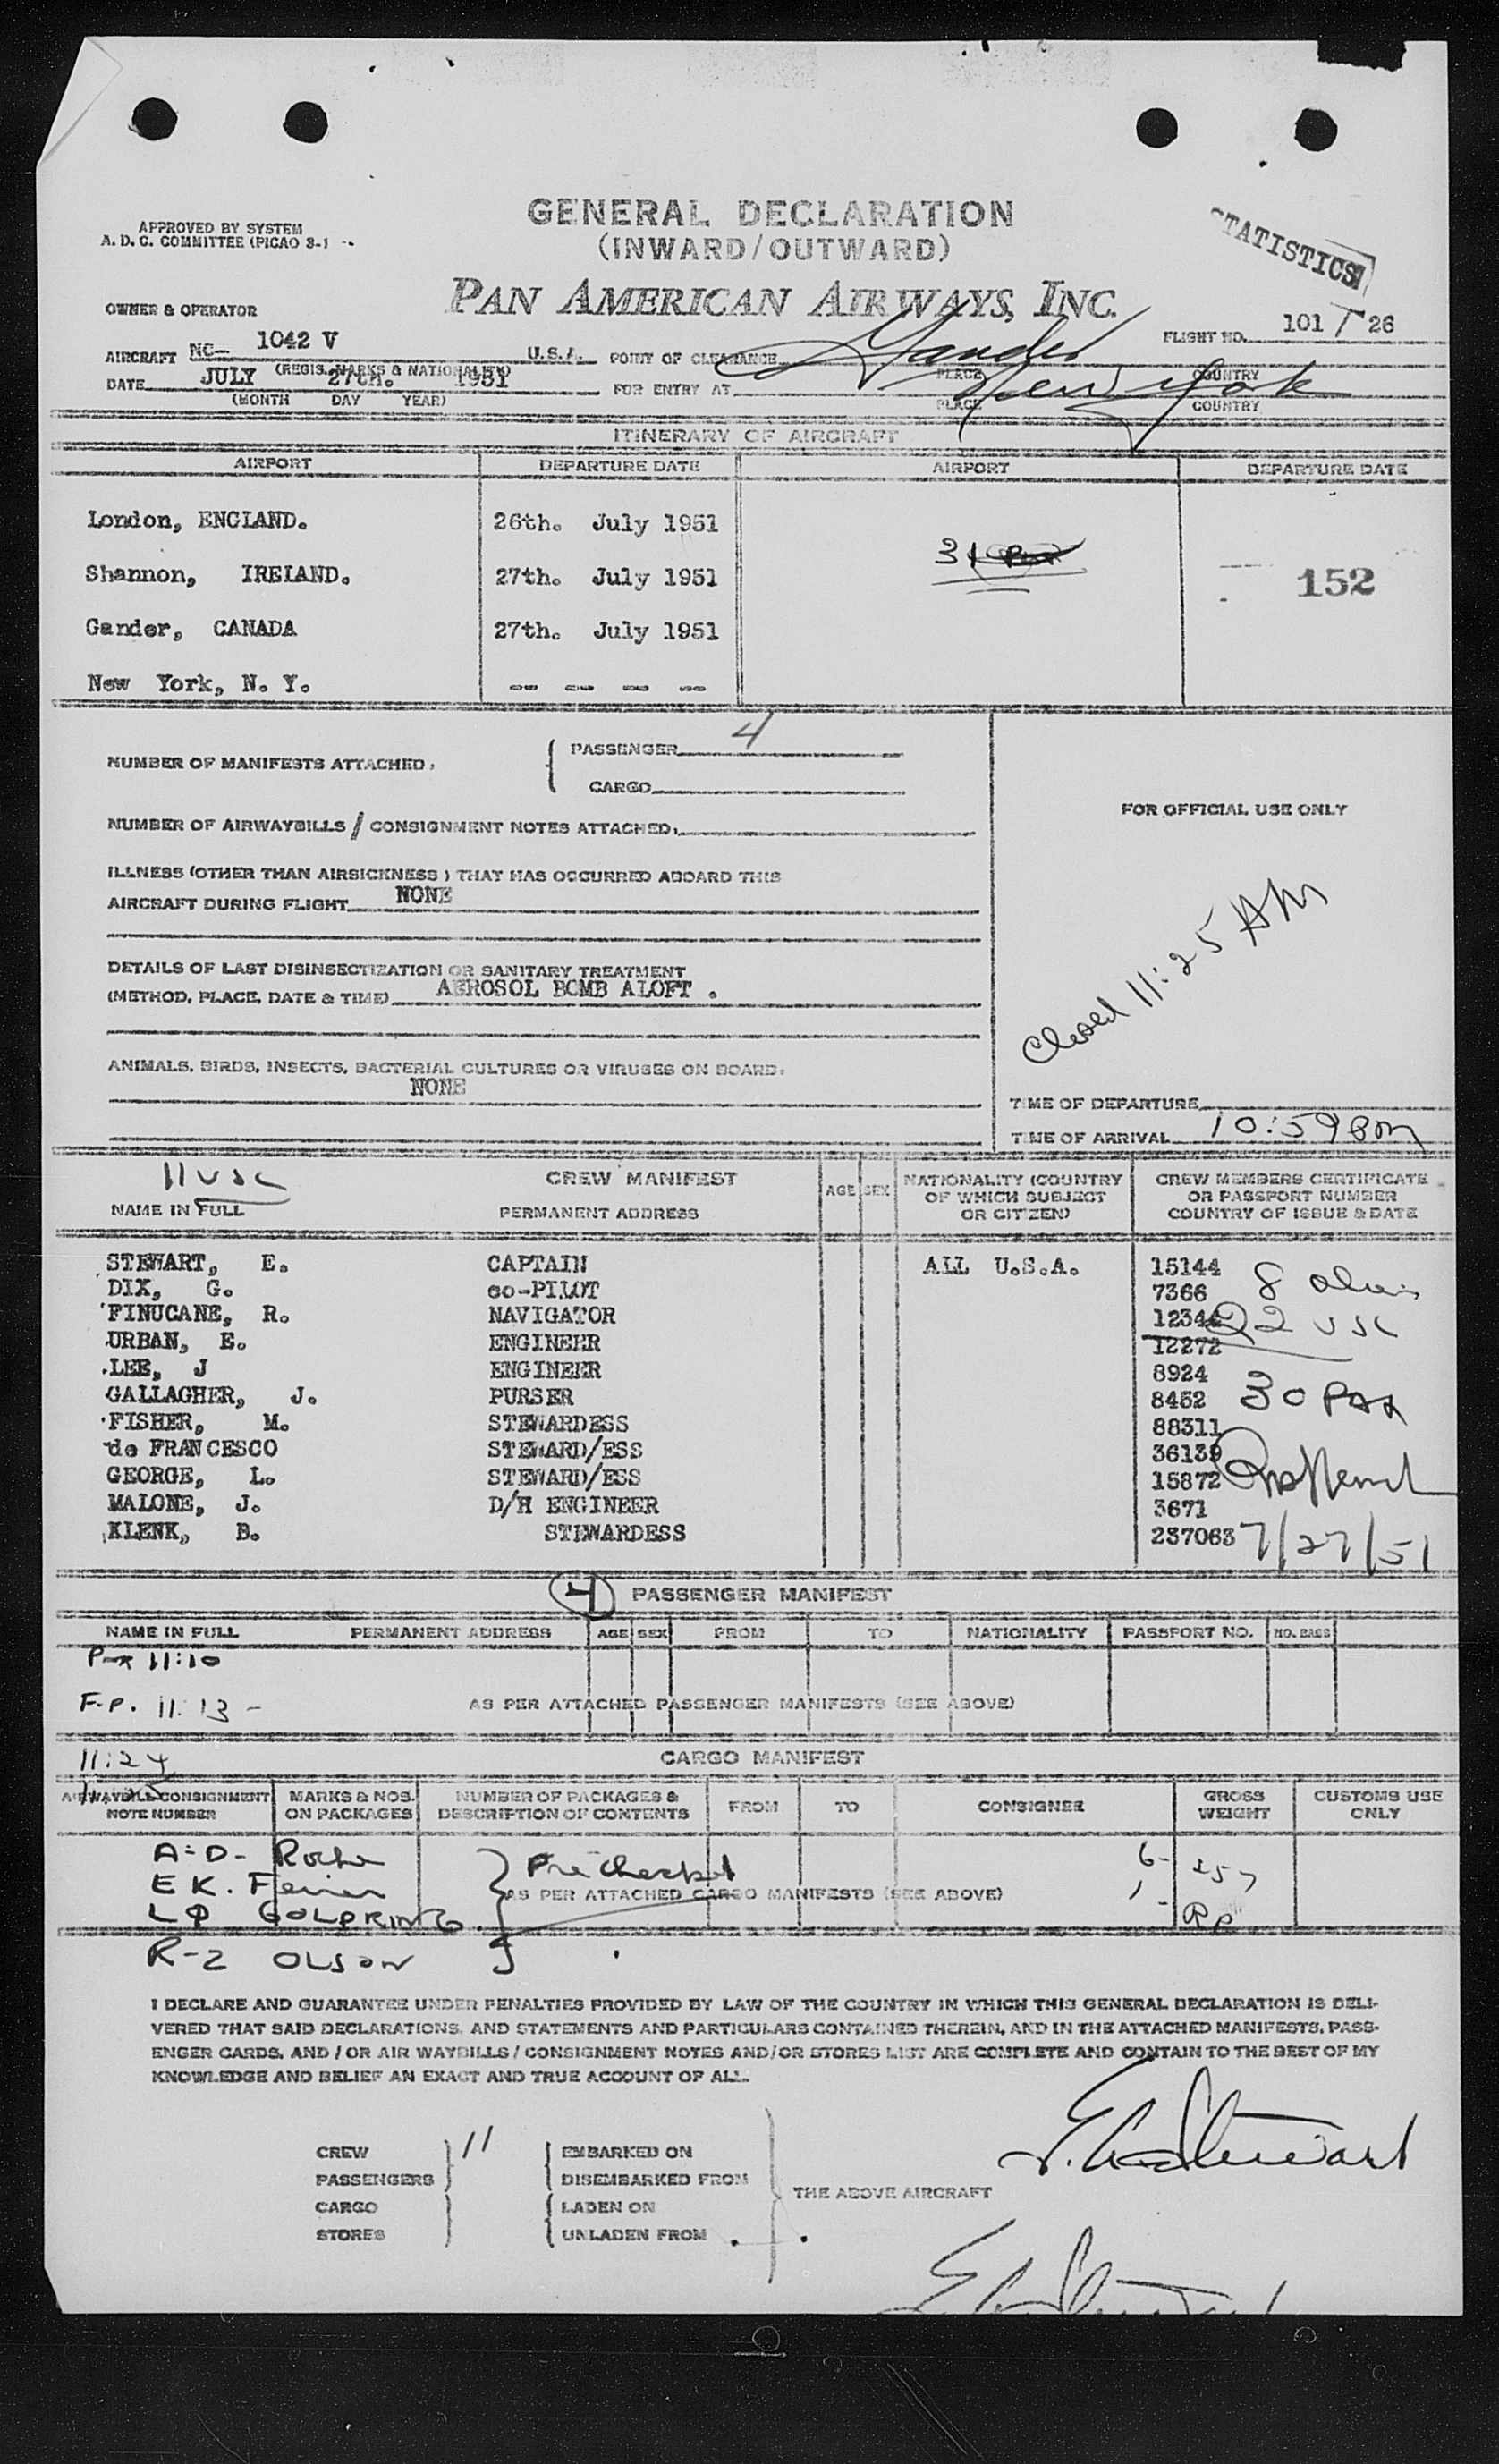 GENERAL DECLARATION
(INWARD/OUTWARD)
APPROVED BY SYSTEM
A. D. C. COMMITTEE (PICAO 3-1
STATISTICS
PAN AMERICAN AIRWAYS, INC.
OWNER & OPERATOR
FLIGHT NO. 101 / 26
AIRCRAFT NC- 1042 V U.S.A. POINT OF CLEARANCE Gander
(REGIS. MARKS & NATIONALITY) PLACE COUNTRY
DATE JULY 27th. 1951 FOR ENTRY AT New York
(MONTH DAY YEAR) PLACE COUNTRY
ITINERARY OF AIRCRAFT
AIRPORT DEPARTURE DATE AIRPORT DEPARTURE DATE
London, ENGLAND. 26th. July 1951
31 Pax
Shannon, IRELAND. 27th. July 1951 152
Gander, CANADA 27th. July 1951
New York, N. Y. -- -- -- --
NUMBER OF MANIFESTS ATTACHED: PASSENGER 4
CARGO
FOR OFFICIAL USE ONLY
NUMBER OF AIRWAYBILLS / CONSIGNMENT NOTES ATTACHED:
ILLNESS (OTHER THAN AIRSICKNESS) THAT HAS OCCURRED ABOARD THIS
AIRCRAFT DURING FLIGHT NONE
Closed 11:25 AM
DETAILS OF LAST DISINSECTIZATION OR SANITARY TREATMENT
(METHOD, PLACE, DATE & TIME) AEROSOL BOMB ALOFT .
ANIMALS, BIRDS, INSECTS, BACTERIAL CULTURES OR VIRUSES ON BOARD.
NONE
TIME OF DEPARTURE
TIME OF ARRIVAL 10:59
11 USC
CREW MANIFEST AGE SEX NATIONALITY (COUNTRY OF WHICH SUBJECT OR CITIZEN) CREW MEMBERS CERTIFICATE OR PASSPORT NUMBER COUNTRY OF ISSUE & DATE
NAME IN FULL PERMANENT ADDRESS
STEWART, E. CAPTAIN ALL U.S.A. 15144
DIX, G. co-PILOT 7366
FINUCANE, R. NAVIGATOR 1234
URBAN, E. ENGINEER 12272
LEE, J ENGINEER 8924
GALLAGHER, J. PURSER 8452
FISHER, M. STEWARDESS 88311
de FRANCESCO STEWARD/ESS 36139
GEORGE, L. STEWARD/ESS 15872
MALONE, J. D/H ENGINEER 3671
KLENK, B. STEWARDESS 237063
8 aliens
22 USC
30 PAX
7/27/51
4 PASSENGER MANIFEST
NAME IN FULL PERMANENT ADDRESS AGE SEX FROM TO NATIONALITY PASSPORT NO. NO. BAGS
Pax 11:10
F.P. 11:13 - AS PER ATTACHED PASSENGER MANIFESTS (SEE ABOVE)
11:24
CARGO MANIFEST
AIRWAYBILL CONSIGNMENT NOTE NUMBER MARKS & NOS. ON PACKAGES NUMBER OF PACKAGES & DESCRIPTION OF CONTENTS FROM TO CONSIGNEE GROSS WEIGHT CUSTOMS USE ONLY
A-D- Roche Pre Checked 6- 257
E K.
AS PER ATTACHED CARGO MANIFESTS (SEE ABOVE)
GOLDRING
R-2 OLSON
I DECLARE AND GUARANTEE UNDER PENALTIES PROVIDED BY LAW OF THE COUNTRY IN WHICH THIS GENERAL DECLARATION IS DELI-
VERED THAT SAID DECLARATIONS, AND STATEMENTS AND PARTICULARS CONTAINED THEREIN, AND IN THE ATTACHED MANIFESTS, PASS-
ENGER CARDS, AND / OR AIR WAYBILLS / CONSIGNMENT NOTES AND/OR STORES LIST ARE COMPLETE AND CONTAIN TO THE BEST OF MY
KNOWLEDGE AND BELIEF AN EXACT AND TRUE ACCOUNT OF ALL.
CREW 11 EMBARKED ON
PASSENGERS DISEMBARKED FROM
THE ABOVE AIRCRAFT
CARGO LADEN ON
STORES UNLADEN FROM
Stewart